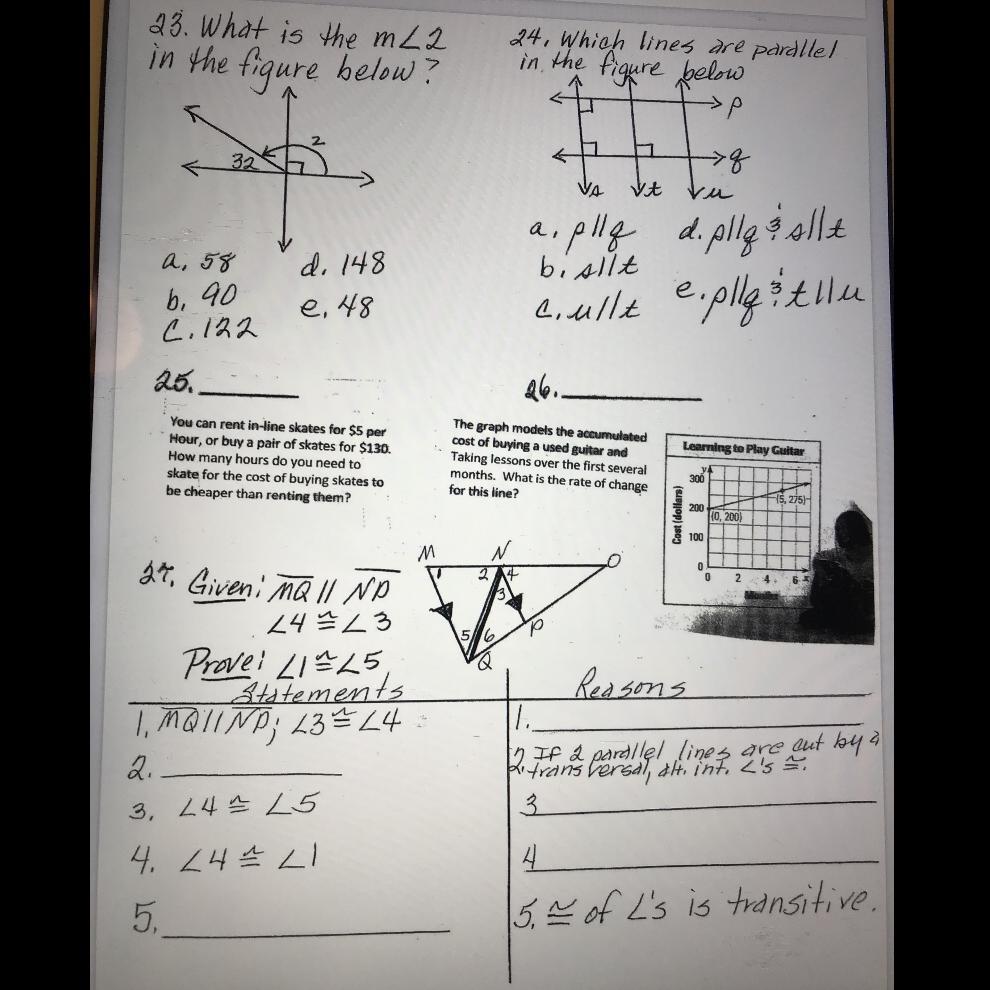 23. What is the m∠2
in the figure below?
2
32
a. 58
d. 148
b. 90
e. 48
c. 122
24. Which lines are parallel
in the figure below
p
q
s
t
u
a. p||q
d. p||q & s||t
b. s||t
e. p||q & t||u
c. u||t
25.
You can rent in-line skates for $5 per
Hour, or buy a pair of skates for $130.
How many hours do you need to
skate for the cost of buying skates to
be cheaper than renting them?
26.
The graph models the accumulated
cost of buying a used guitar and
Taking lessons over the first several
months. What is the rate of change
for this line?
Learning to Play Guitar
Cost (dollars)
y
300
200
100
0
(0, 200)
(5, 275)
0 2 4 6 x
27. Given: MQ || NP
∠4 ≅ ∠3
Prove: ∠1 ≅ ∠5
M N O
1 2 4
3
P
5 6
Q
Statements
Reasons
1. MQ || NP; ∠3 ≅ ∠4
1.
2.
2. If 2 parallel lines are cut by a
transversal, alt. int. ∠'s ≅.
3. ∠4 ≅ ∠5
3
4. ∠4 ≅ ∠1
4
5.
5. ≅ of ∠'s is transitive.